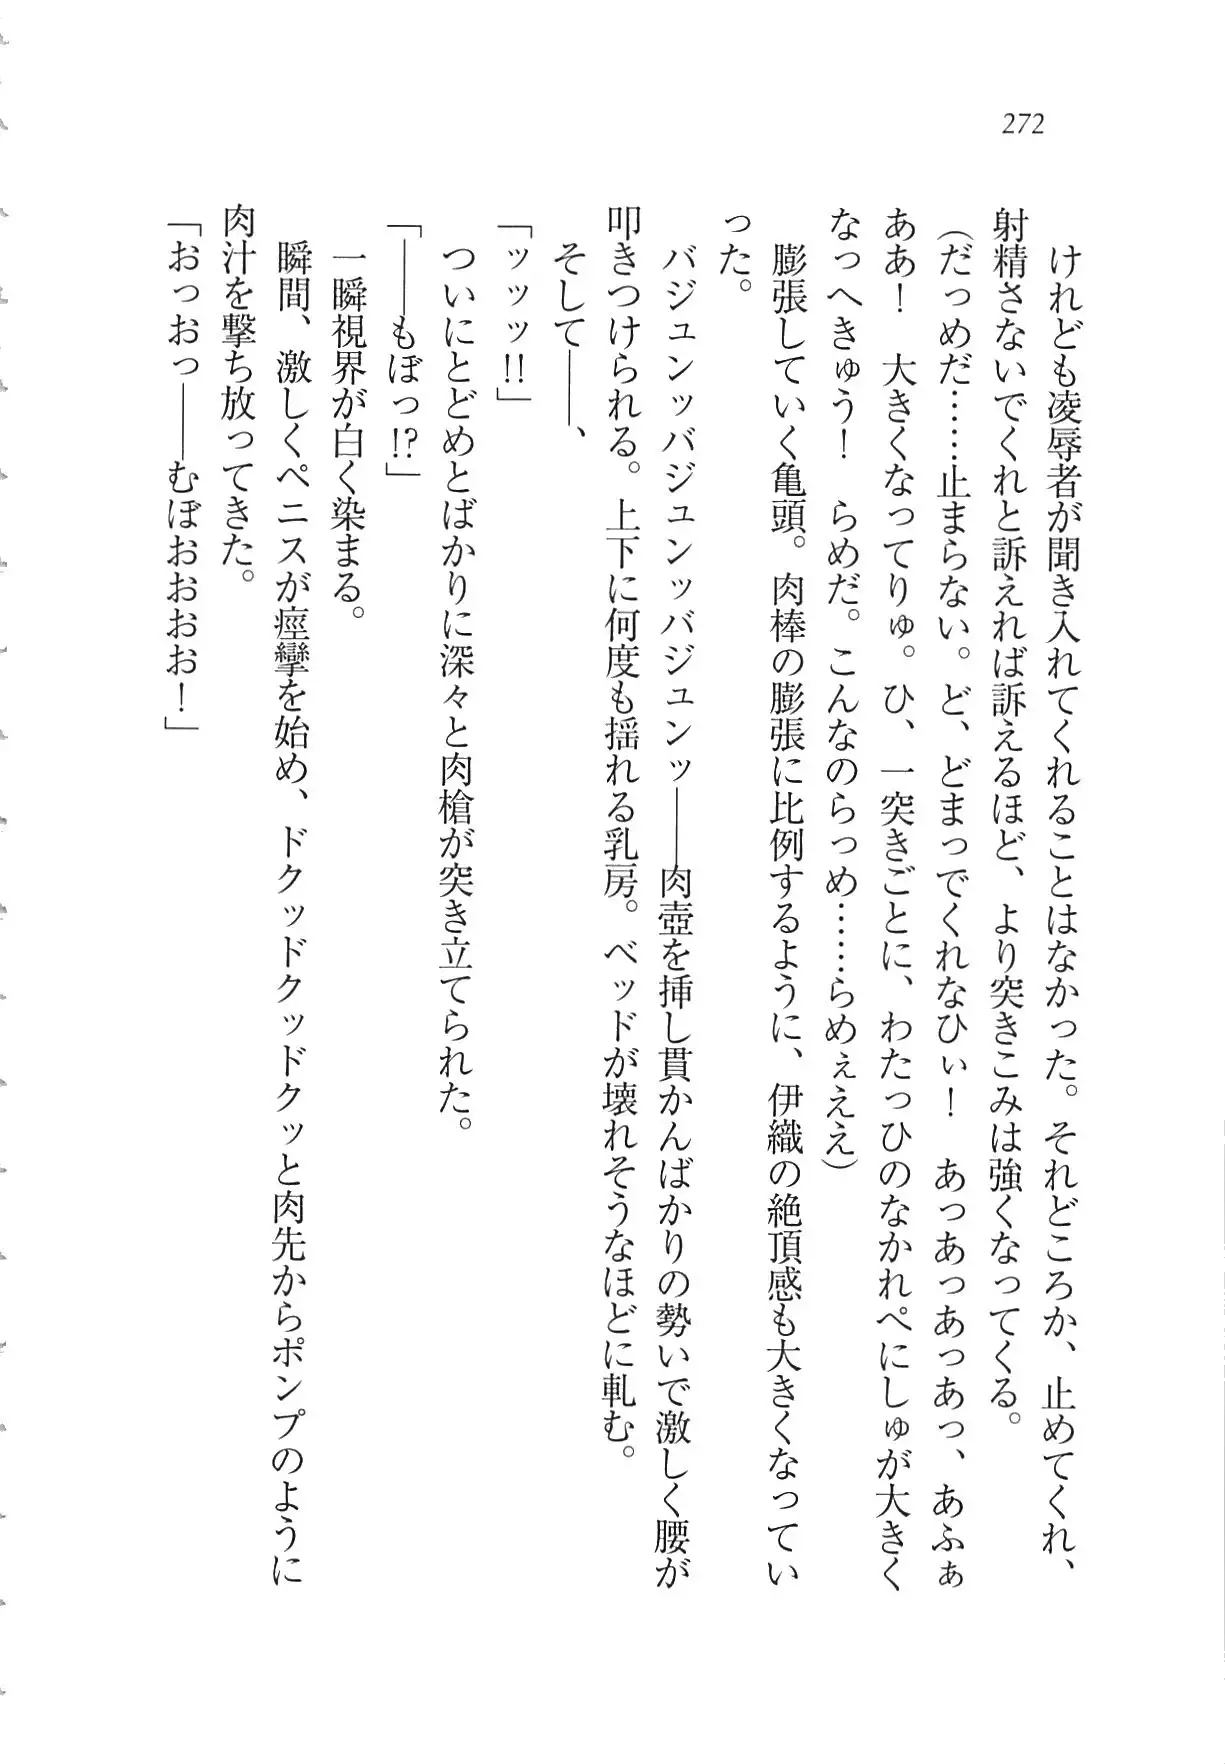 272
けれども凌辱者が聞き入れてくれることはなかった。それどころか、止めてくれ、
射精さないでくれと訴えれば訴えるほど、より突きこみは強くなってくる。
（だっめだ……止まらない。ど、どまっでくれなひぃ！　あっあっあっあっ、あふぁ
ああ！　大きくなってりゅ。ひ、一突きごとに、わたっひのなかれぺにしゅが大きく
なっへきゅう！　らめだ。こんなのらっめ……らめぇええ）
膨張していく亀頭。肉棒の膨張に比例するように、伊織の絶頂感も大きくなってい
った。
バジュンッバジュンッバジュンッ――肉壺を挿し貫かんばかりの勢いで激しく腰が
叩きつけられる。上下に何度も揺れる乳房。ベッドが壊れそうなほどに軋む。
そして――、
「ッッッ!!」
ついにとどめとばかりに深々と肉槍が突き立てられた。
「――もぼっ!?」
一瞬視界が白く染まる。
瞬間、激しくペニスが痙攣を始め、ドクッドクッドクッと肉先からポンプのように
肉汁を撃ち放ってきた。
「おっおっ――むぼおおおお！」